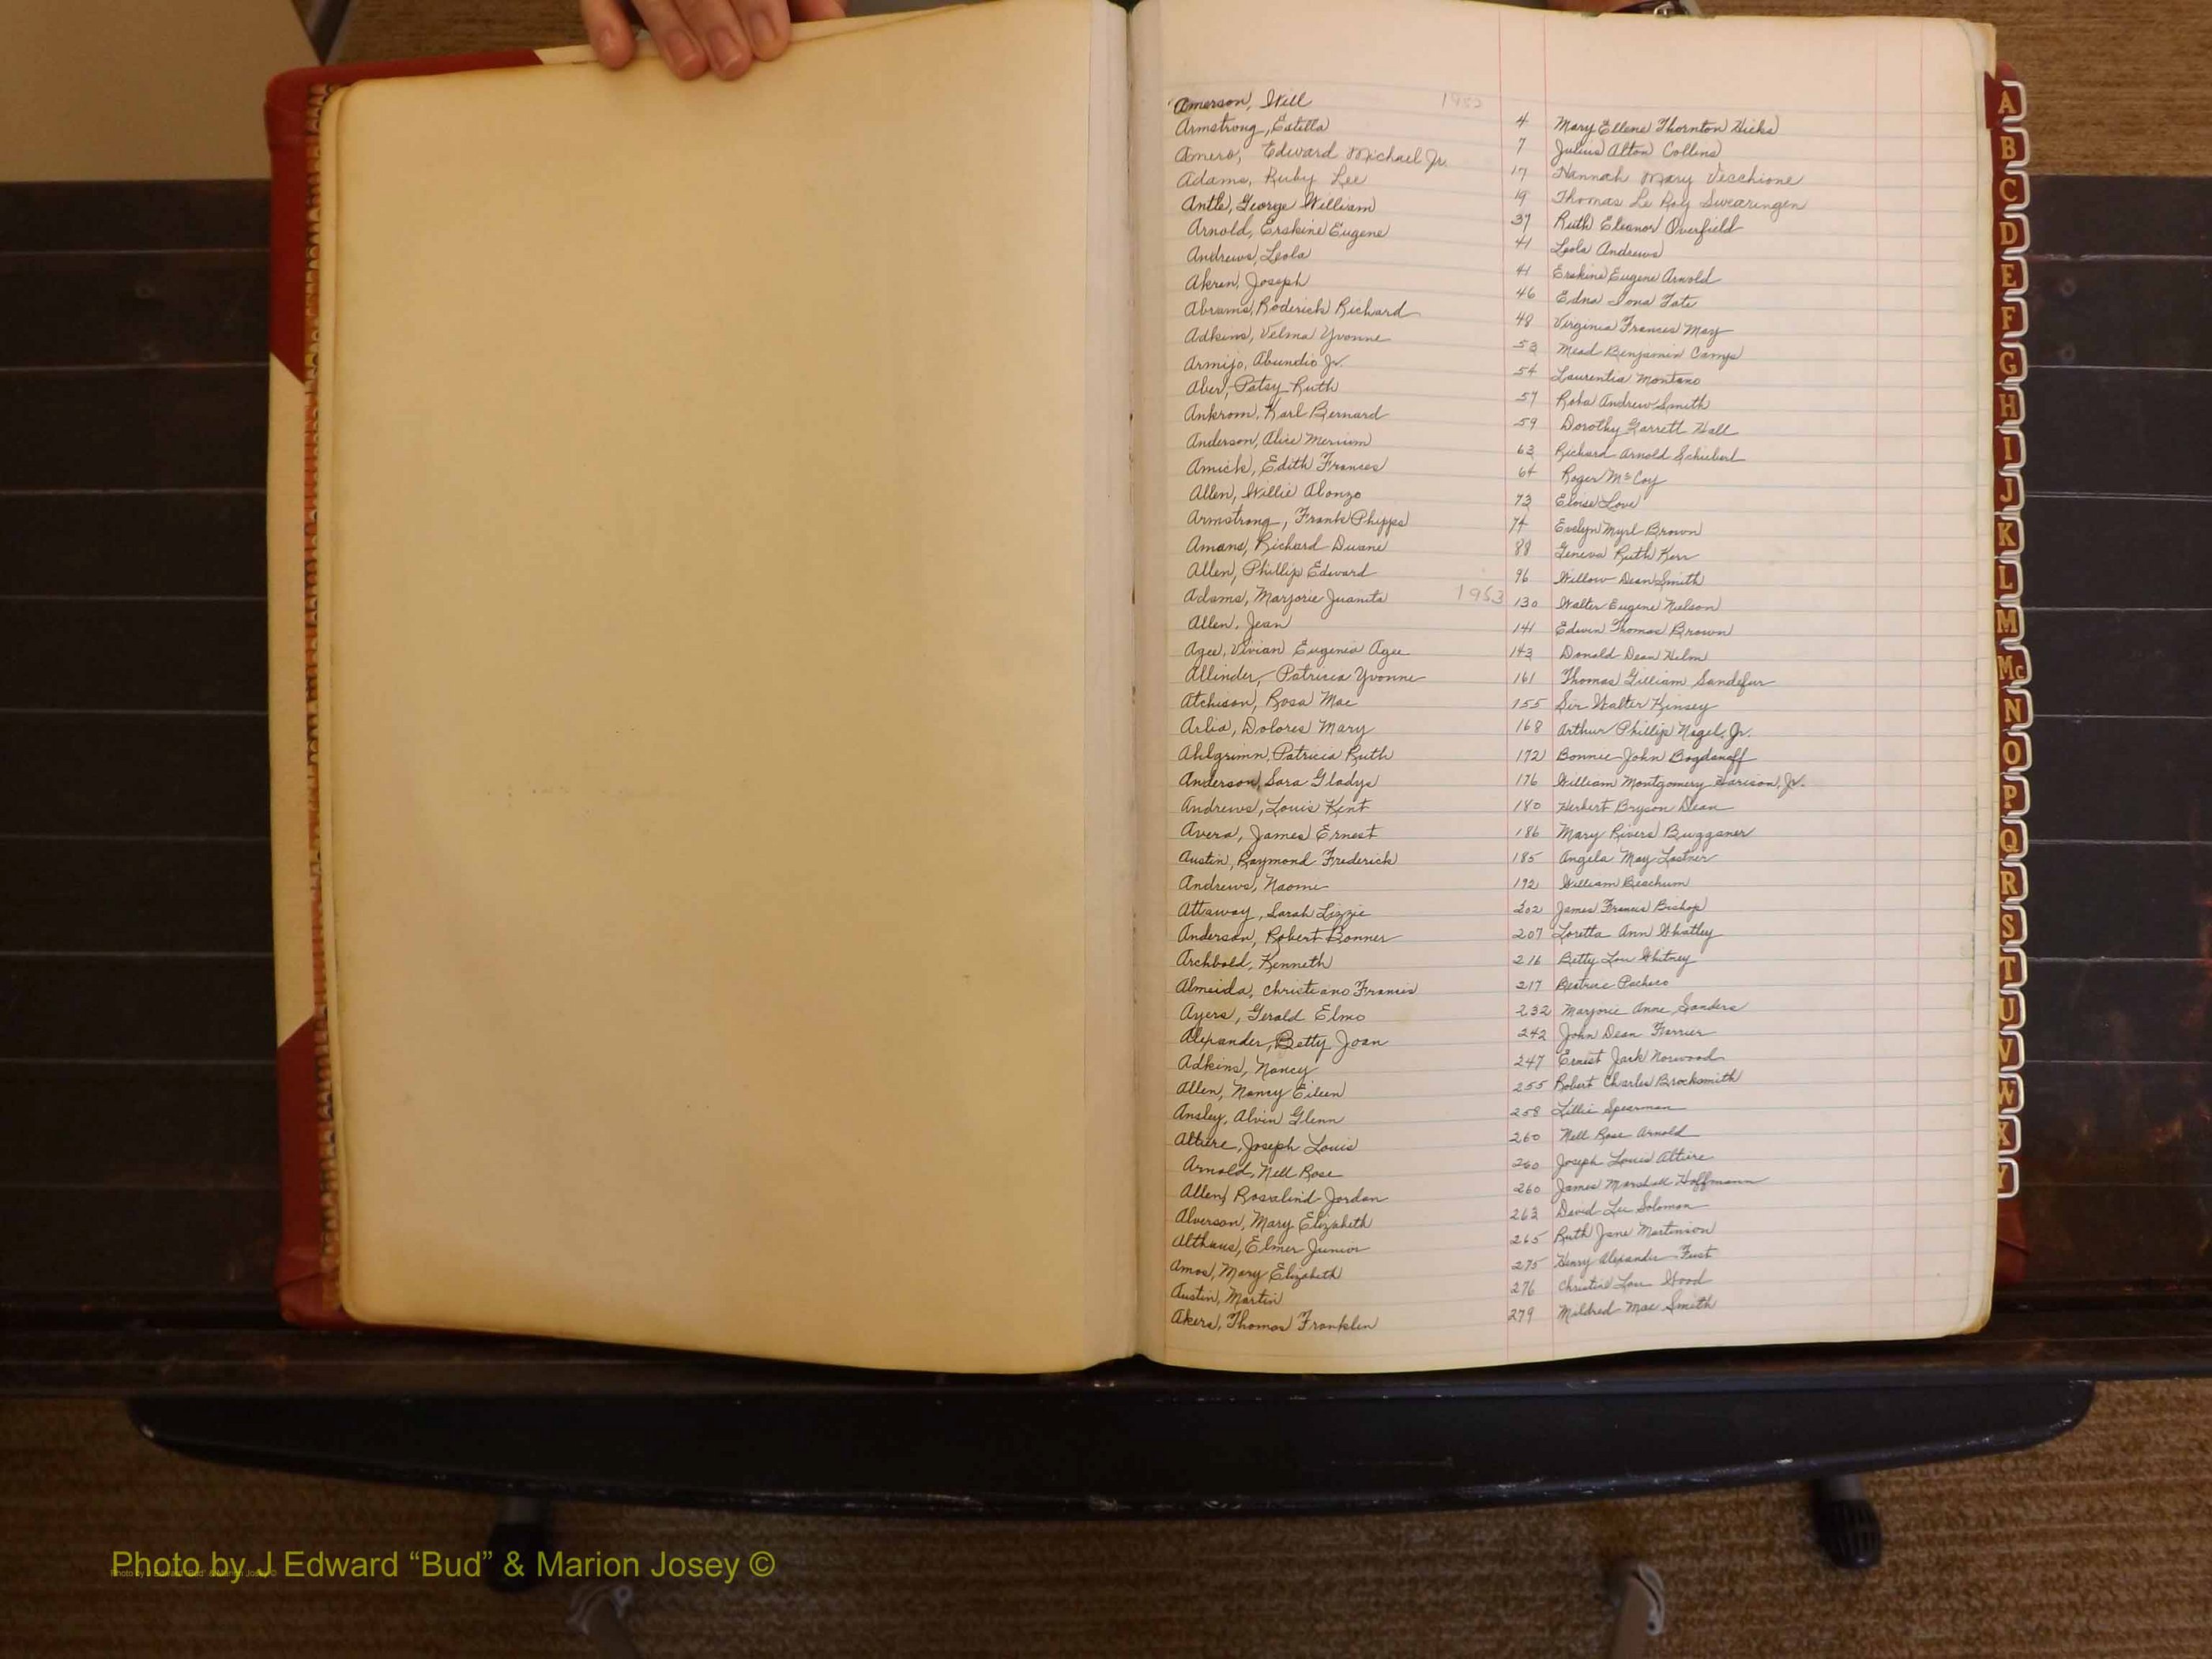 Amerson, Will 1952 4 Mary Ellene Thornton Hicks
Armstrong, Estella 7 Julius Alton Collins
Amero, Edward Michael Jr. 17 Hannah Mary Vecchione
Adams, Ruby Lee 19 Thomas Le Roy Swearingen
Antle, George William 37 Ruth Eleanor Overfield
Arnold, Erskine Eugene 41 Leola Andrews
Andrews, Leola 41 Erskine Eugene Arnold
Akren, Joseph 46 Edna Iona Tate
Abrams, Roderick Richard 48 Virginia Frances May
Adkins, Velma Yvonne 53 Mead Benjamin Camps
Armijo, Abundio Jr. 54 Laurentia Montano
Aber, Patsy Ruth 57 Andrew Smith
Ankrom, Karl Bernard 59 Dorothy Garrett Hall
Anderson, Alice Merium 63 Richard Arnold Schieberl
Amick, Edith Frances 64 Roger McCoy
Allen, Willie Alonzo 73 Eloise Love
Armstrong, Frank Phipps 74 Evelyn Myrl Brown
Amans, Richard Duane 88 Geneva Ruth Kerr
Allen, Phillip Edward 96 Willow Dean Smith
Adams, Marjorie Juanita 1953 130 Walter Eugene Nielson
Allen, Jean 141 Edwin Thomas Brown
Agee, Vivian Eugenia Agee 143 Donald Dean Helm
Allinder, Patricia Yvonne 161 Thomas Gilliam Sandefur
Atchison, Rosa Mae 155 Sir Walter Kinsey
Arlia, Dolores Mary 168 Arthur Phillip Nagel, Jr.
Ahlgrimn, Patricia Ruth 172 Bonnie John Bogdanoff
Anderson, Sara Gladys 176 William Montgomery Harison, Jr.
Andrews, Louis Kent 180 Herbert Bryson Dean
Avera, James Ernest 186 Mary Rivers Bugganer
Austin, Raymond Frederick 185 Angela May Lastner
Andrews, Naomi 192 William Beachum
Attaway, Sarah Lizzie 202 James Francis Bishop
Anderson, Robert Bonner 207 Loretta Ann Whatley
Archbold, Kenneth 216 Betty Lou Whitney
Almeida, Christiano Francis 217 Beatrice Pacheco
Ayers, Gerald Elmo 232 Marjorie Anne Sanders
Alexander, Betty Joan 242 John Dean Farrier
Adkins, Nancy 247 Ernest Jack Norwood
Allen, Nancy Eileen 255 Robert Charles Brocksmith
Ansley, Alvin Glenn 258 Lillie Spearman
Altiere, Joseph Louis 260 Nell Rose Arnold
Arnold, Nell Rose 260 Joseph Louis Altiere
Allen, Rosalind Jordan 260 James Marshall Hoffmann
Alverson, Mary Elizabeth 263 David Lee Solomon
Althaus, Elmer Junior 265 Ruth Jane Martinion
Amos, Mary Elizabeth 275 Henry Alexander Fust
Austin, Martin 276 Christie Lou Wood
Akers, Thomas Franklin 279 Mildred Mae Smith
A
B
C
D
E
F
G
H
I
J
K
L
M
Mc
N
O
P
Q
R
S
T
U
V
W
X
Y
Photo by J Edward “Bud” & Marion Josey ©
Photo by J Edward "Bud" & Marion Josey ©